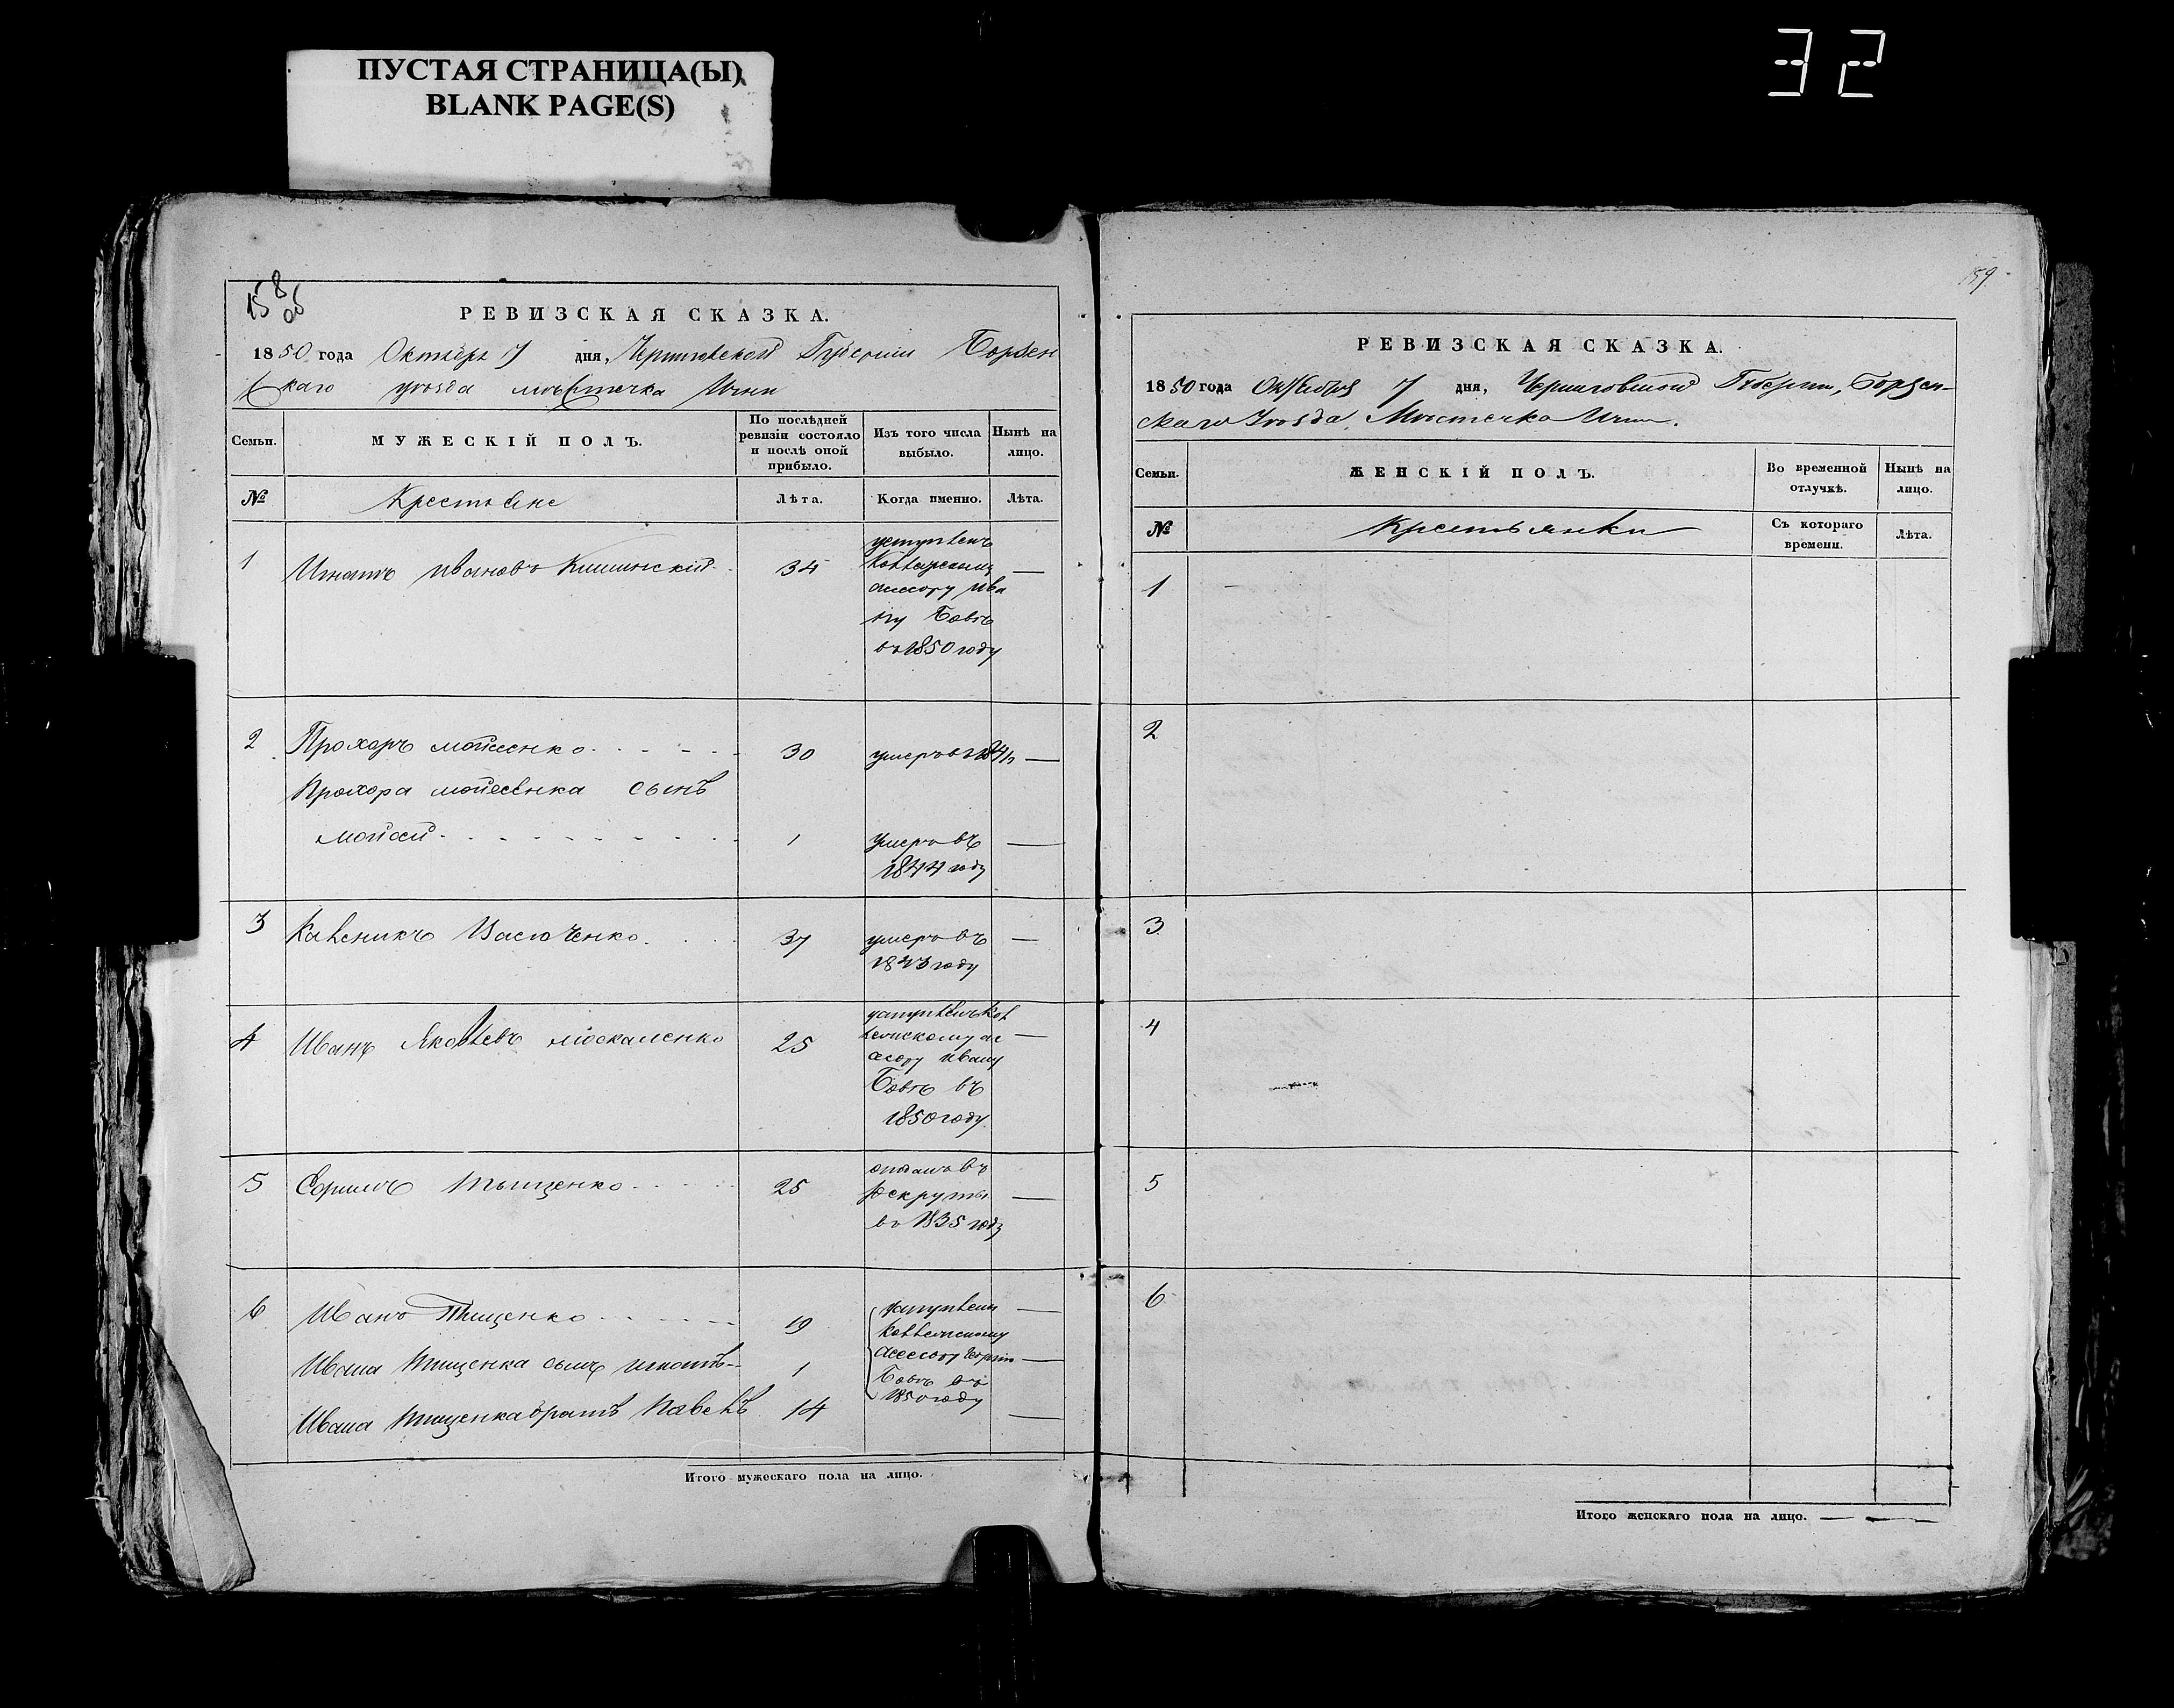 ПУСТАЯ СТРАНИЦА(Ы)
BLANK PAGE(S)
32
158
об
РЕВИЗСКАЯ СКАЗКА.
1850 года Октября 7 дня, Черниговской Губернии Борзен
скаго уезда местечка Ични
Семьи.
МУЖЕСКІЙ ПОЛЪ.
По послѣдней ревизіи состояло и послѣ оной прибыло.
Изъ того числа выбыло.
Нынѣ на лицо.
№
Крестьяне
Лѣта.
Когда именно.
Лѣта.
1 Игнатъ Ивановъ 34
уступленъ
Коллежскому
ассесору Ива
ну Бовтъ
въ 1850 году
2 Прохоръ Мойсеенко 30 умеръ въ
Прохора Мойсеенка сынъ
Мойсей 1 умеръ въ
1844 году
3 Каленикъ Васюченко 37 умеръ въ
1843 году
4 Иванъ Яковлевъ Москаленко 25
уступленъ Кол
лежскому ас
сесору Ивану
Бовтъ въ
1850 году
5 Тыщенко 25
отданъ въ
рекруты
въ 1835 году
6 Иванъ Тищенко 19
Ивана Тищенка сынъ Игнатъ 1
Ивана Тищенка братъ Павелъ 14
уступлены
Коллежскому
Асессору
Бовтъ въ
1850 году
Итого мужескаго пола на лицо.
159
РЕВИЗСКАЯ СКАЗКА.
1850 года Октября 7 дня, Черниговской Губернии, Борзен-
скаго Уезда, Местечка Ични.
Семьи.
ЖЕНСКІЙ ПОЛЪ.
Во временной отлучкѣ.
Нынѣ на лицо.
№
Крестьянки
Съ котораго времени.
Лѣта.
1
2
3
4
5
6
Итого женскаго пола на лицо.